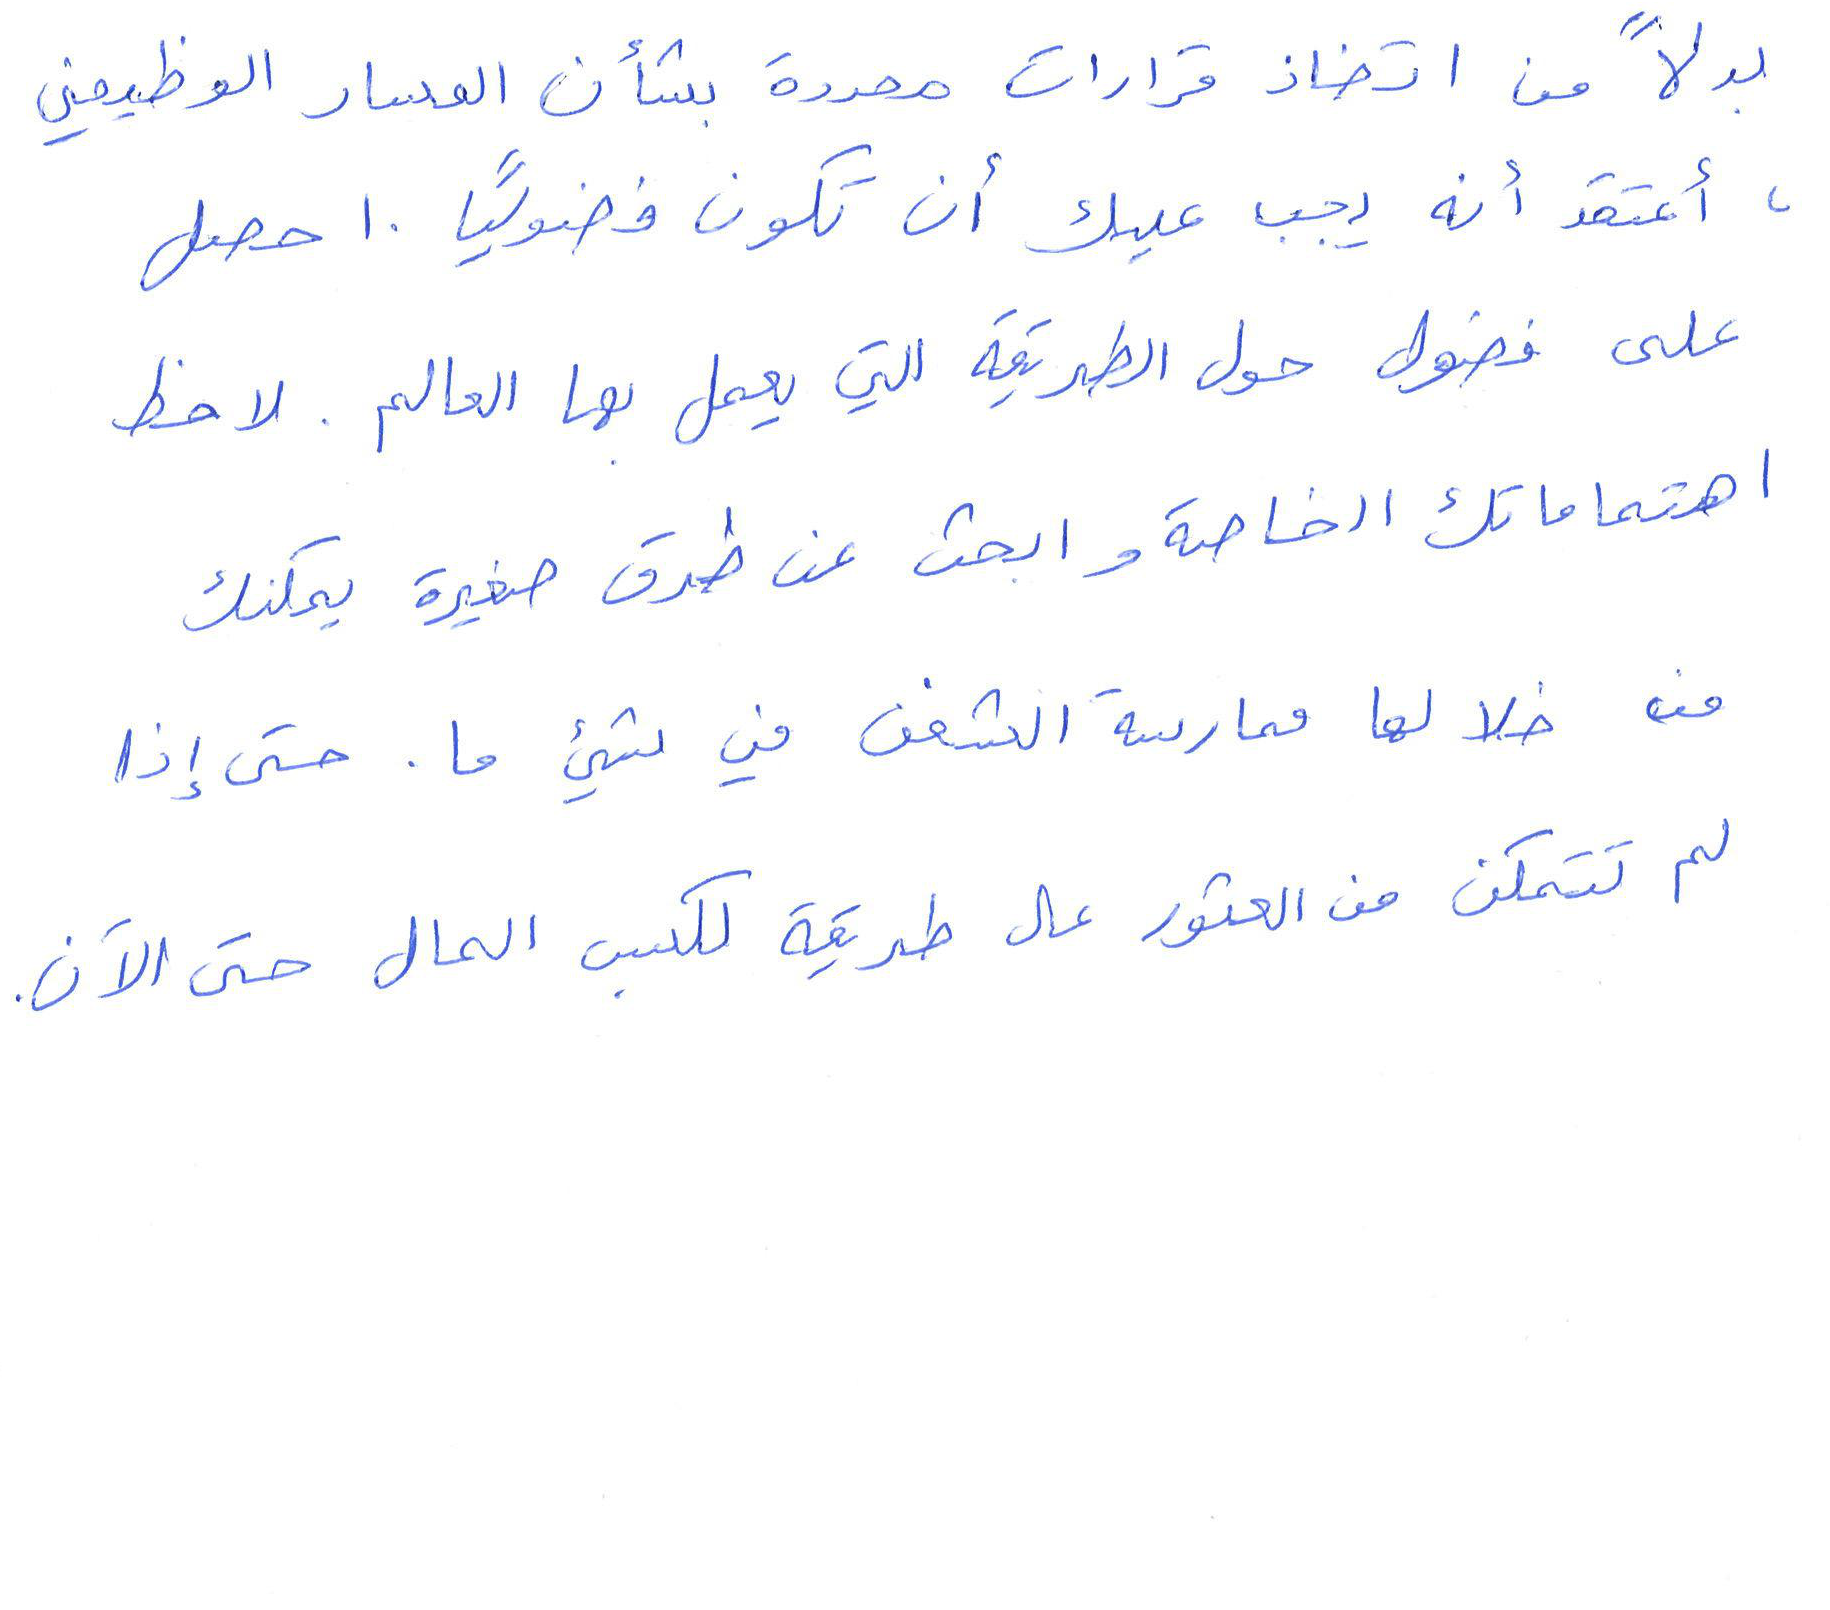 بدلاً من اتخاذ قرارات محددة بشأن المسار الوظيفي
، أعتقد أنه يجب عليك أن تكون فضوليًا . احصل
على فضول حول الطريقة التي يعمل بها العالم . لاحظ
اهتماماتك الخاصة وابحث عن طرق صغيرة يمكنك
من خلالها ممارسة الشغف في شيئ ما . حتى إذا
لم تتمكن من العثور على طريقة لكسب المال حتى الآن .